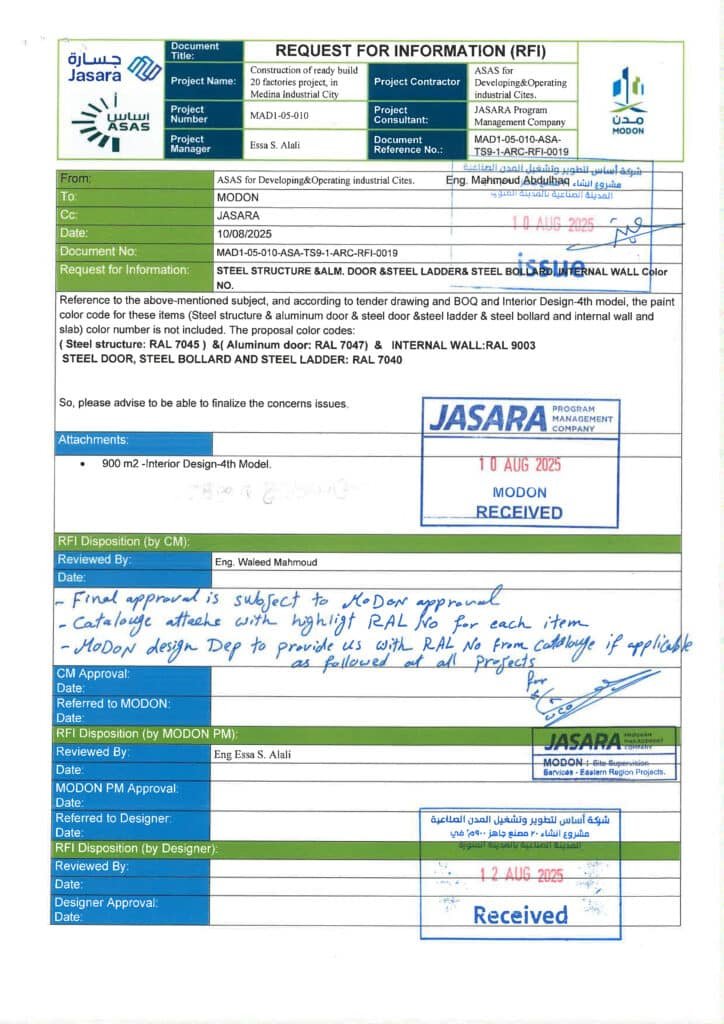 جسارة
Jasara
اساس
ASAS
Document Title:
REQUEST FOR INFORMATION (RFI)
Project Name:
Construction of ready build
20 factories project, in
Medina Industrial City
Project Contractor
ASAS for
Developing&Operating
industrial Cites.
Project Number
MAD1-05-010
Project Consultant:
JASARA Program
Management Company
Project Manager
Essa S. Alali
Document Reference No.:
MAD1-05-010-ASA-
TS9-1-ARC-RFI-0019
مدن
MODON
From:
ASAS for Developing&Operating industrial Cites.
Eng. Mahmoud Abdulhaq
شركة أساس للتطوير وتشغيل المدن الصناعية
مشروع انشاء
المدينة الصناعية بالمدينة المنورة
10 AUG 2025
issue
To:
MODON
Cc:
JASARA
Date:
10/08/2025
Document No:
MAD1-05-010-ASA-TS9-1-ARC-RFI-0019
Request for Information:
STEEL STRUCTURE &ALM. DOOR &STEEL LADDER& STEEL BOLLARD INTERNAL WALL Color
NO.
Reference to the above-mentioned subject, and according to tender drawing and BOQ and Interior Design-4th model, the paint
color code for these items (Steel structure & aluminum door & steel door &steel ladder & steel bollard and internal wall and
slab) color number is not included. The proposal color codes:
( Steel structure: RAL 7045 ) &( Aluminum door: RAL 7047) & INTERNAL WALL:RAL 9003
STEEL DOOR, STEEL BOLLARD AND STEEL LADDER: RAL 7040
So, please advise to be able to finalize the concerns issues.
JASARA PROGRAM MANAGEMENT COMPANY
10 AUG 2025
MODON
RECEIVED
Attachments:
• 900 m2 -Interior Design-4th Model.
RFI Disposition (by CM):
Reviewed By:
Eng. Waleed Mahmoud
Date:
- Final approval is subject to MODON approval
- Catalouge attache with highligt RAL No for each item
- MODON design Dep to provide us with RAL No from Catalouge if applicable
as followed at all projects
for
CM Approval:
Date:
Referred to MODON:
Date:
RFI Disposition (by MODON PM):
JASARA PROGRAM MANAGEMENT COMPANY
MODON : Site Supervision
Services - Eastern Region Projects.
Reviewed By:
Eng Essa S. Alali
Date:
MODON PM Approval:
Date:
Referred to Designer:
Date:
شركة أساس للتطوير وتشغيل المدن الصناعية
مشروع انشاء ٢٠ مصنع جاهز ٩٠٠م٢ في
المدينة الصناعية بالمدينة المنورة
12 AUG 2025
Received
RFI Disposition (by Designer):
Reviewed By:
Date:
Designer Approval:
Date: